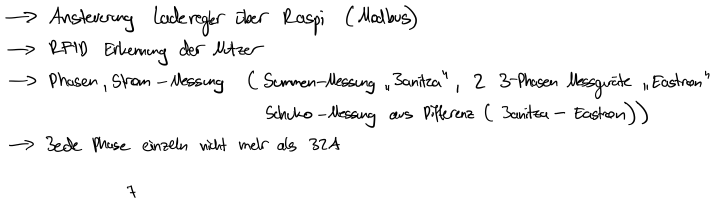 → Ansteuerung Laderegler über Raspi (Modbus)
→ RFID Erkennung der Nutzer
→ Phasen, Strom-Messung (Summen-Messung "Janitza", 2 3-Phasen Messgeräte "Eastron"
Schuko-Messung aus Differenz (Janitza - Eastron))
→ Jede Phase einzeln nicht mehr als 32A
7